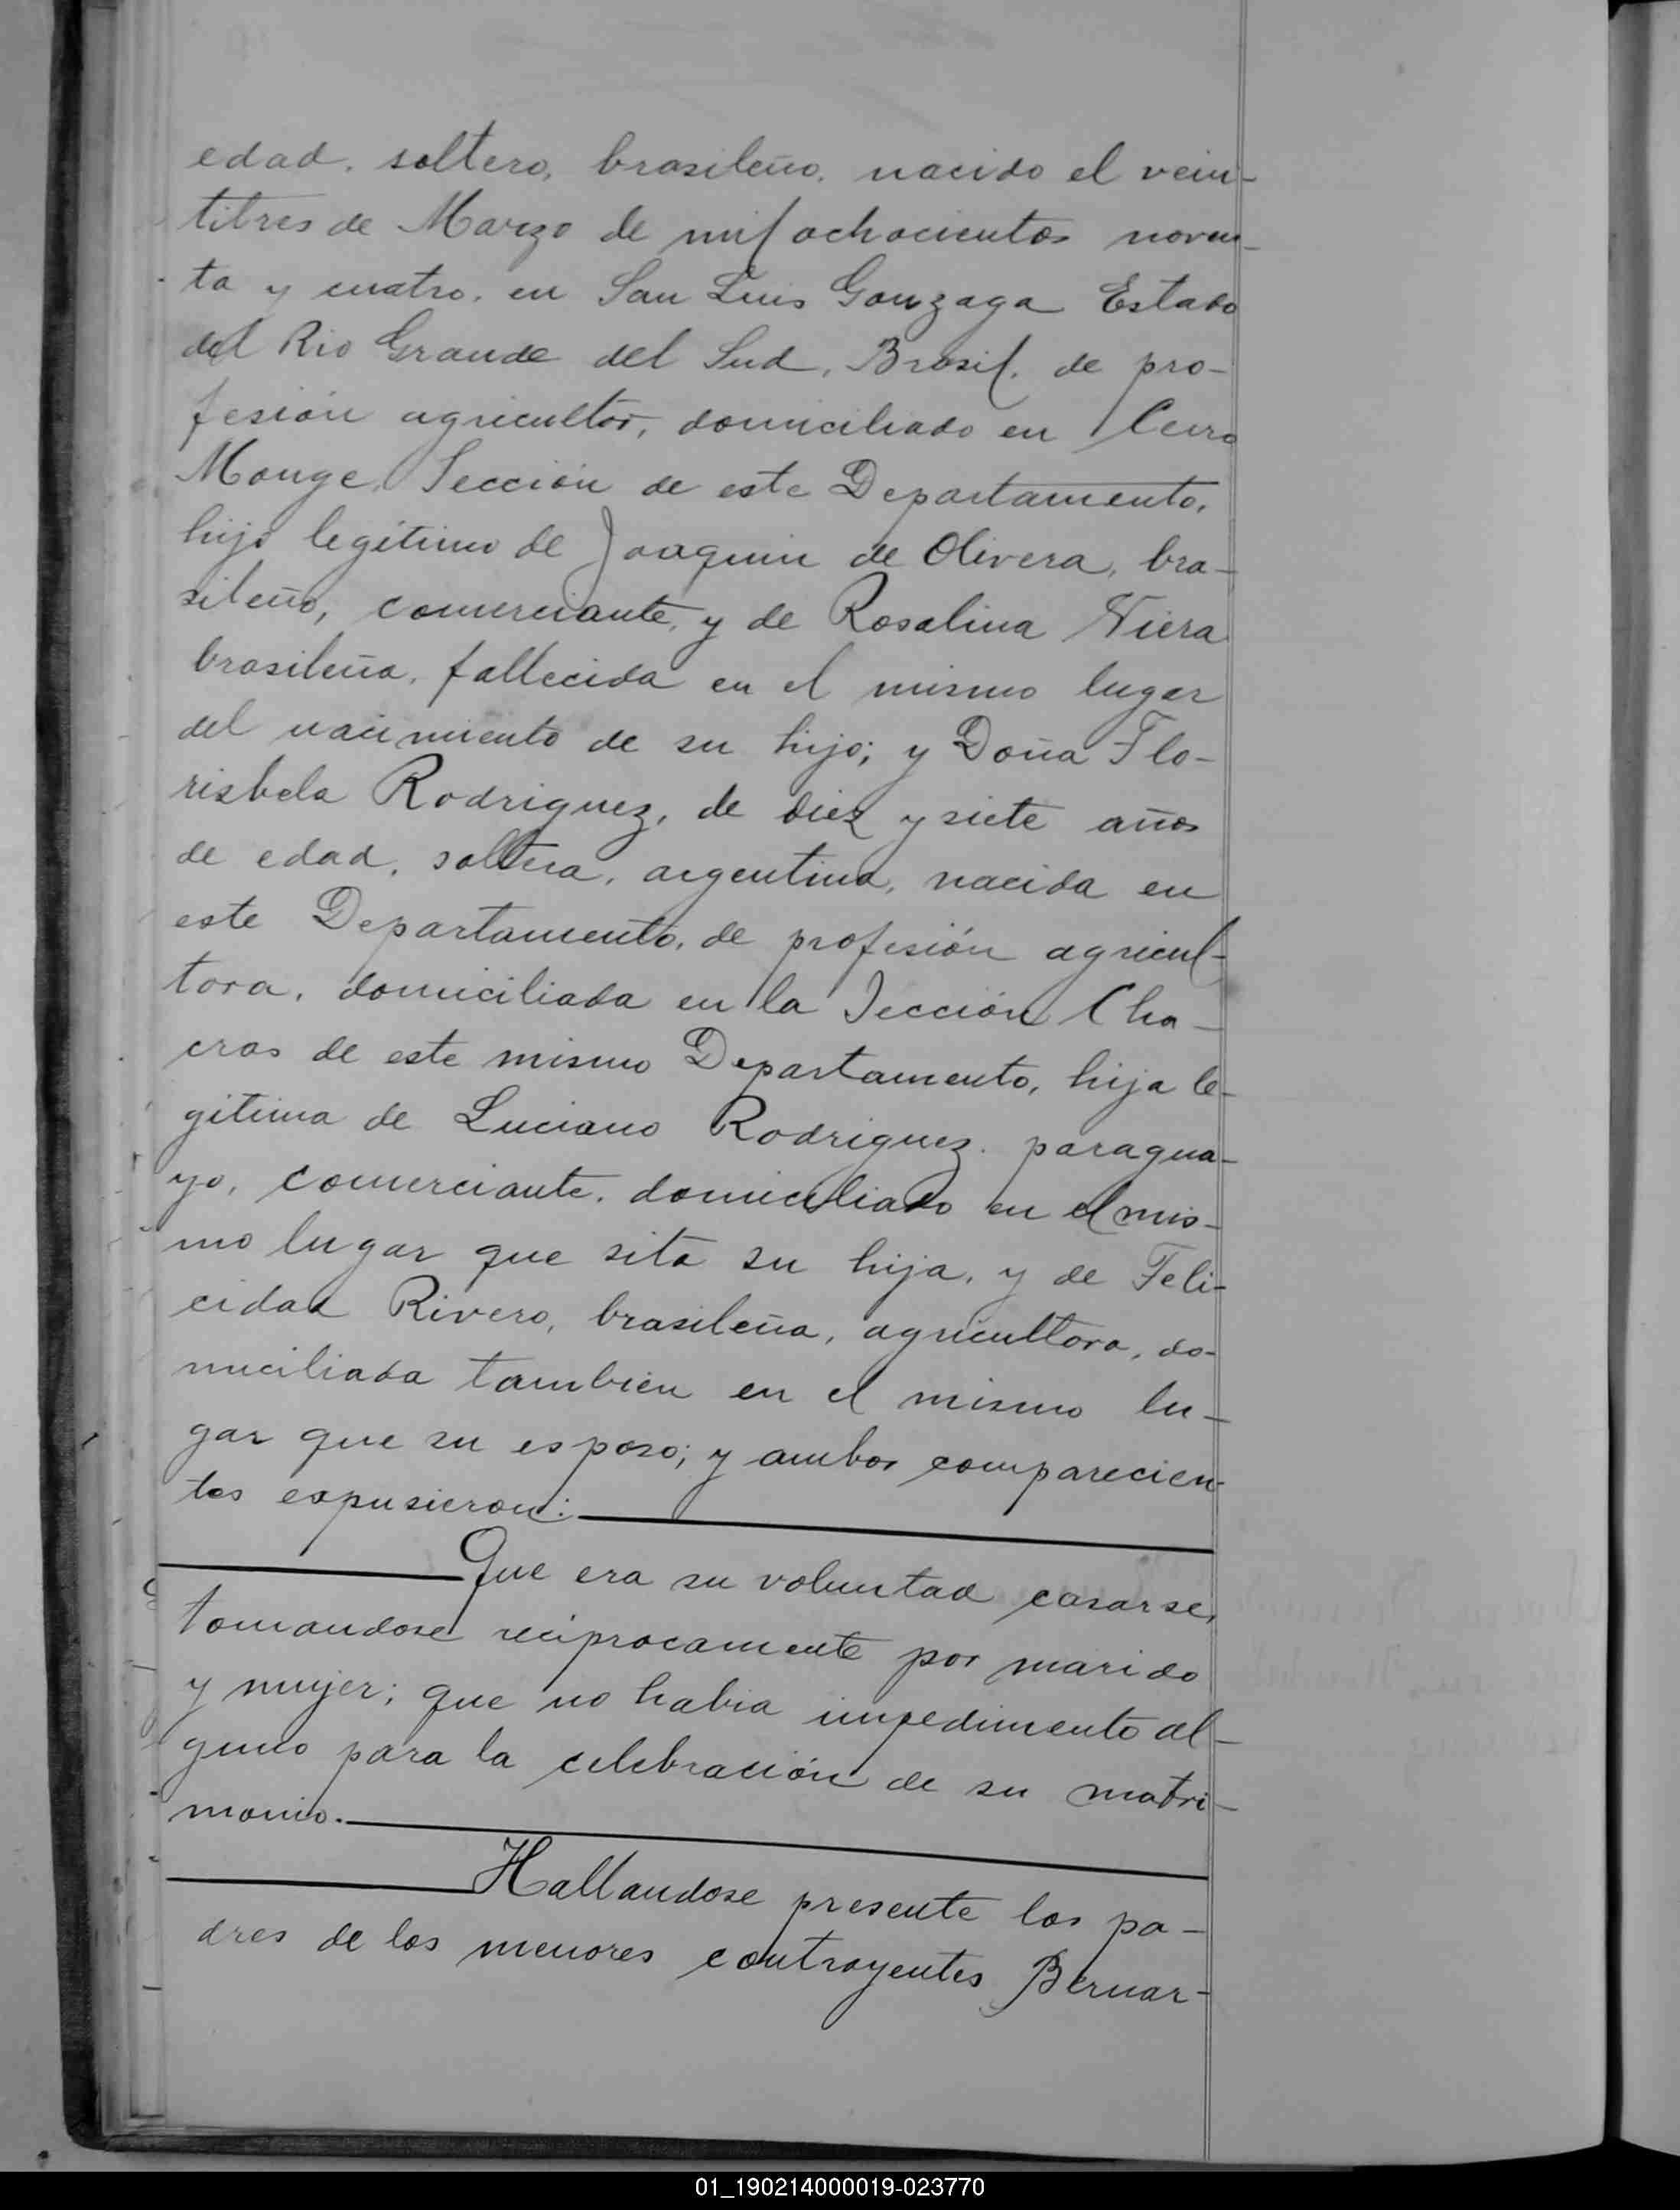 edad, soltero, brasileño, nacido el vein-
titres de Marzo de mil ochocientos noven-
ta y cuatro, en San Luis Gonzaga Estado
del Rio Grande del Sud, Brasil, de pro-
fesión agricultor, domiciliado en Cerro
Monge, Sección de este Departamento,
hijo legítimo de Joaquin de Olivera, bra-
sileño, comerciante, y de Rosalina Viera
brasileña, fallecida en el mismo lugar
del nacimiento de su hijo; y Doña Flo-
risbela Rodriguez, de diez y siete años
de edad, soltera, argentina, nacida en
este Departamento, de profesión agricul-
tora, domiciliada en la Sección Cha-
cras de este mismo Departamento, hija le-
gitima de Luciano Rodriguez, paragua-
yo, comerciante, domiciliado en el mis-
mo lugar que sita su hija, y de Feli-
cidad Rivero, brasileña, agricultora, do-
miciliada tambien en el mismo lu-
gar que su esposo; y ambos comparecien-
tes expusieron:
Que era su voluntad casarse,
tomandose reciprocamente por marido
y mujer; que no habia impedimento al-
guno para la celebración de su matri-
monio.
Hallandose presente los pa-
dres de los menores contrayentes Bernar-
01_190214000019-023770